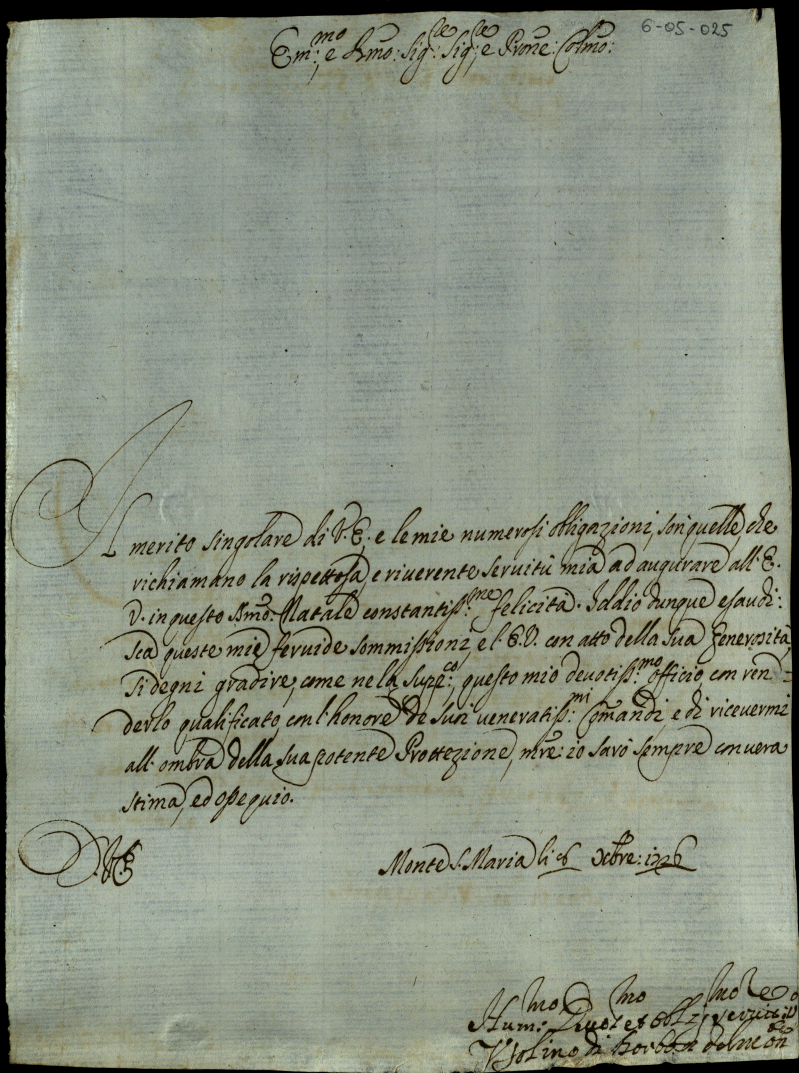 6-05-025
Em:mo e Rmo: Sig:re Sig:re e Prone: Colmo:
Il merito singolare di V. E. e le mie numerosi obligazioni, son quelle, che
richiamano la rispettosa, e riverente servitù mia ad augurare all' E.
V. in questo SSmo: Natale constantiss:me felicità. Iddio dunque esaudi:
sca queste mie fervide sommissioni, e l' E.V. con atto della sua generosità
si degni gradire, come ne la supp:co, questo mio devotiss:mo officio, con ren=
derlo qualificato con l'honore de suoi veneratiss:mi Comandi, e di ricevermi
all' ombra della sua potente Prottezione, mre: io sarò sempre con vera
stima, ed ossequio.
D. V. E.
Monte S. Maria li 6 Xbre: 1726
Hum:mo Devot:mo et Obb:mo servit:re
di Borbon del Mon